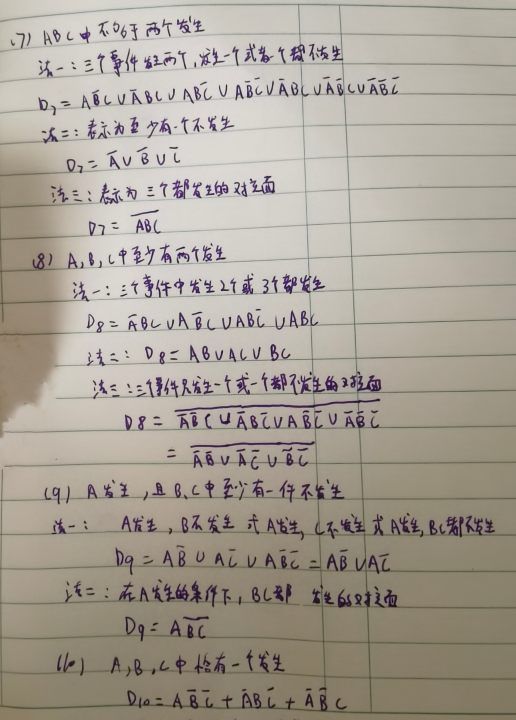 (7) ABC中不多于两个发生
法一:三个事件发生两个,发生一个或者个都不发生
D₇ = AB̄C ∪ ĀBC ∪ ABC̄ ∪ AB̄C̄ ∪ ĀBC̄ ∪ ĀB̄C ∪ ĀB̄C̄
法二:表示为至少有一个不发生
D₇ = Ā ∪ B̄ ∪ C̄
法三:表示为三个都发生的对立面
D7 = \overline{ABC}
(8) A,B,C中至少有两个发生
法一:三个事件中发生2个或3个都发生
D8 = ĀBC ∪ AB̄C ∪ ABC̄ ∪ ABC
法二: D8 = AB ∪ AC ∪ BC
法三:三个事件只发生一个或一个都不发生的对立面
D8 = \overline{ĀB̄C ∪ ĀBC̄ ∪ AB̄C̄ ∪ ĀB̄C̄}
= \overline{ĀB̄ ∪ ĀC̄ ∪ B̄C̄}
(9) A发生,且B,C中至少有一件不发生
法一: A发生,B不发生 或A发生,C不发生 或A发生,BC都不发生
D9 = AB̄ ∪ AC̄ ∪ AB̄C̄ = AB̄ ∪ AC̄
法二:在A发生的条件下,BC都 发生的对立面
D9 = A\overline{BC}
(10) A,B,C中恰有一个发生
D10 = AB̄C̄ + ĀBC̄ + ĀB̄C